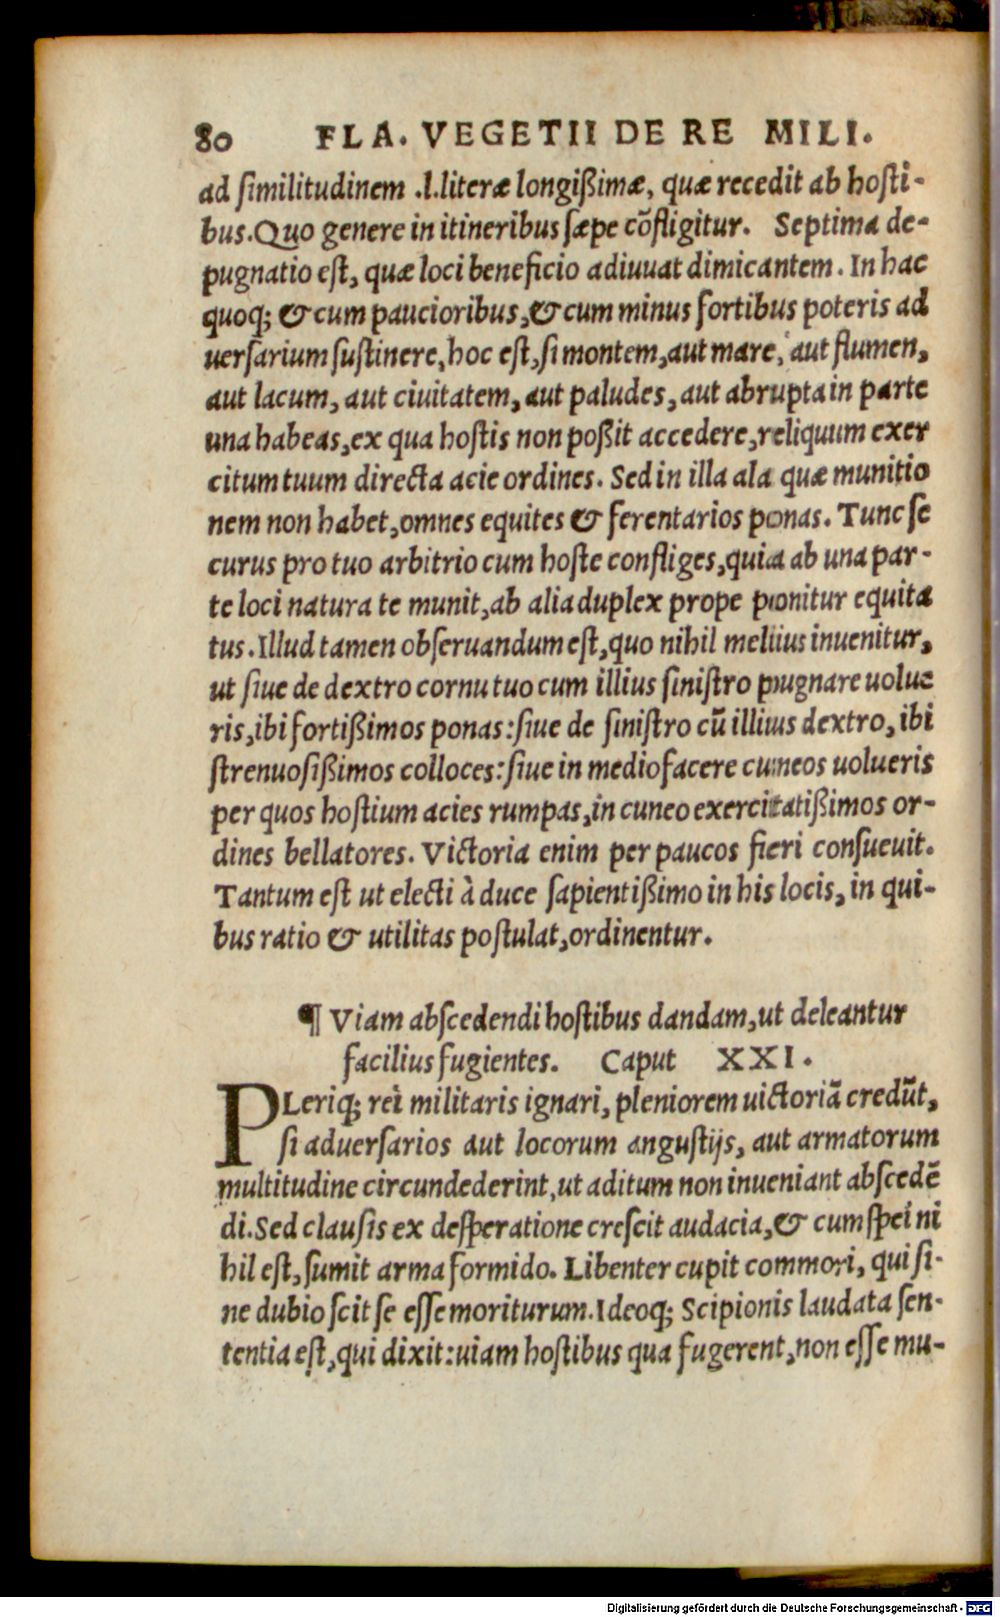 80 FLA. VEGETII DE RE MILI.
ad ſimilitudinem .l.literæ longißimæ, quæ recedit ab hoſti-
bus.Quo genere in itineribus ſæpe cõfligitur. Septima de-
pugnatio eſt, quæ loci beneficio adiuuat dimicantem. In hac
quoq; & cum paucioribus,& cum minus fortibus poteris ad
uerſarium ſuſtinere,hoc eſt,ſi montem,aut mare, aut flumen,
aut lacum, aut ciuitatem, aut paludes, aut abrupta in parte
una habeas,ex qua hoſtis non poßit accedere,reliquum exer
citum tuum directa acie ordines. Sed in illa ala quæ munitio
nem non habet,omnes equites & ferentarios ponas. Tunc ſe
curus pro tuo arbitrio cum hoſte confliges,quia ab una par-
te loci natura te munit,ab alia duplex prope ponitur equita
tus. Illud tamen obſeruandum eſt,quo nihil melius inuenitur,
ut ſiue de dextro cornu tuo cum illius ſiniſtro pugnare uolue
ris,ibi fortißimos ponas:ſiue de ſiniſtro cũ illius dextro, ibi
ſtrenuoſißimos colloces:ſiue in medio facere cuneos uolueris
per quos hoſtium acies rumpas,in cuneo exercitatißimos or-
dines bellatores. Victoria enim per paucos fieri conſueuit.
Tantum eſt ut electi à duce ſapientißimo in his locis, in qui-
bus ratio & utilitas poſtulat,ordinentur.
¶ Viam abſcedendi hoſtibus dandam,ut deleantur
facilius fugientes. Caput XXI.
PLeriq; rei militaris ignari, pleniorem uictoriã credũt,
ſi aduerſarios aut locorum anguſtijs, aut armatorum
multitudine circundederint,ut aditum non inueniant abſcedẽ
di.Sed clauſis ex deſperatione creſcit audacia,& cum ſpei ni
hil eſt,ſumit arma formido. Libenter cupit commori, qui ſi-
ne dubio ſcit ſe eſſe moriturum.Ideoq; Scipionis laudata ſen-
tentia eſt,qui dixit:uiam hoſtibus qua fugerent,non eſſe mu-
Digitalisierung gefördert durch die Deutsche Forschungsgemeinschaft - DFG